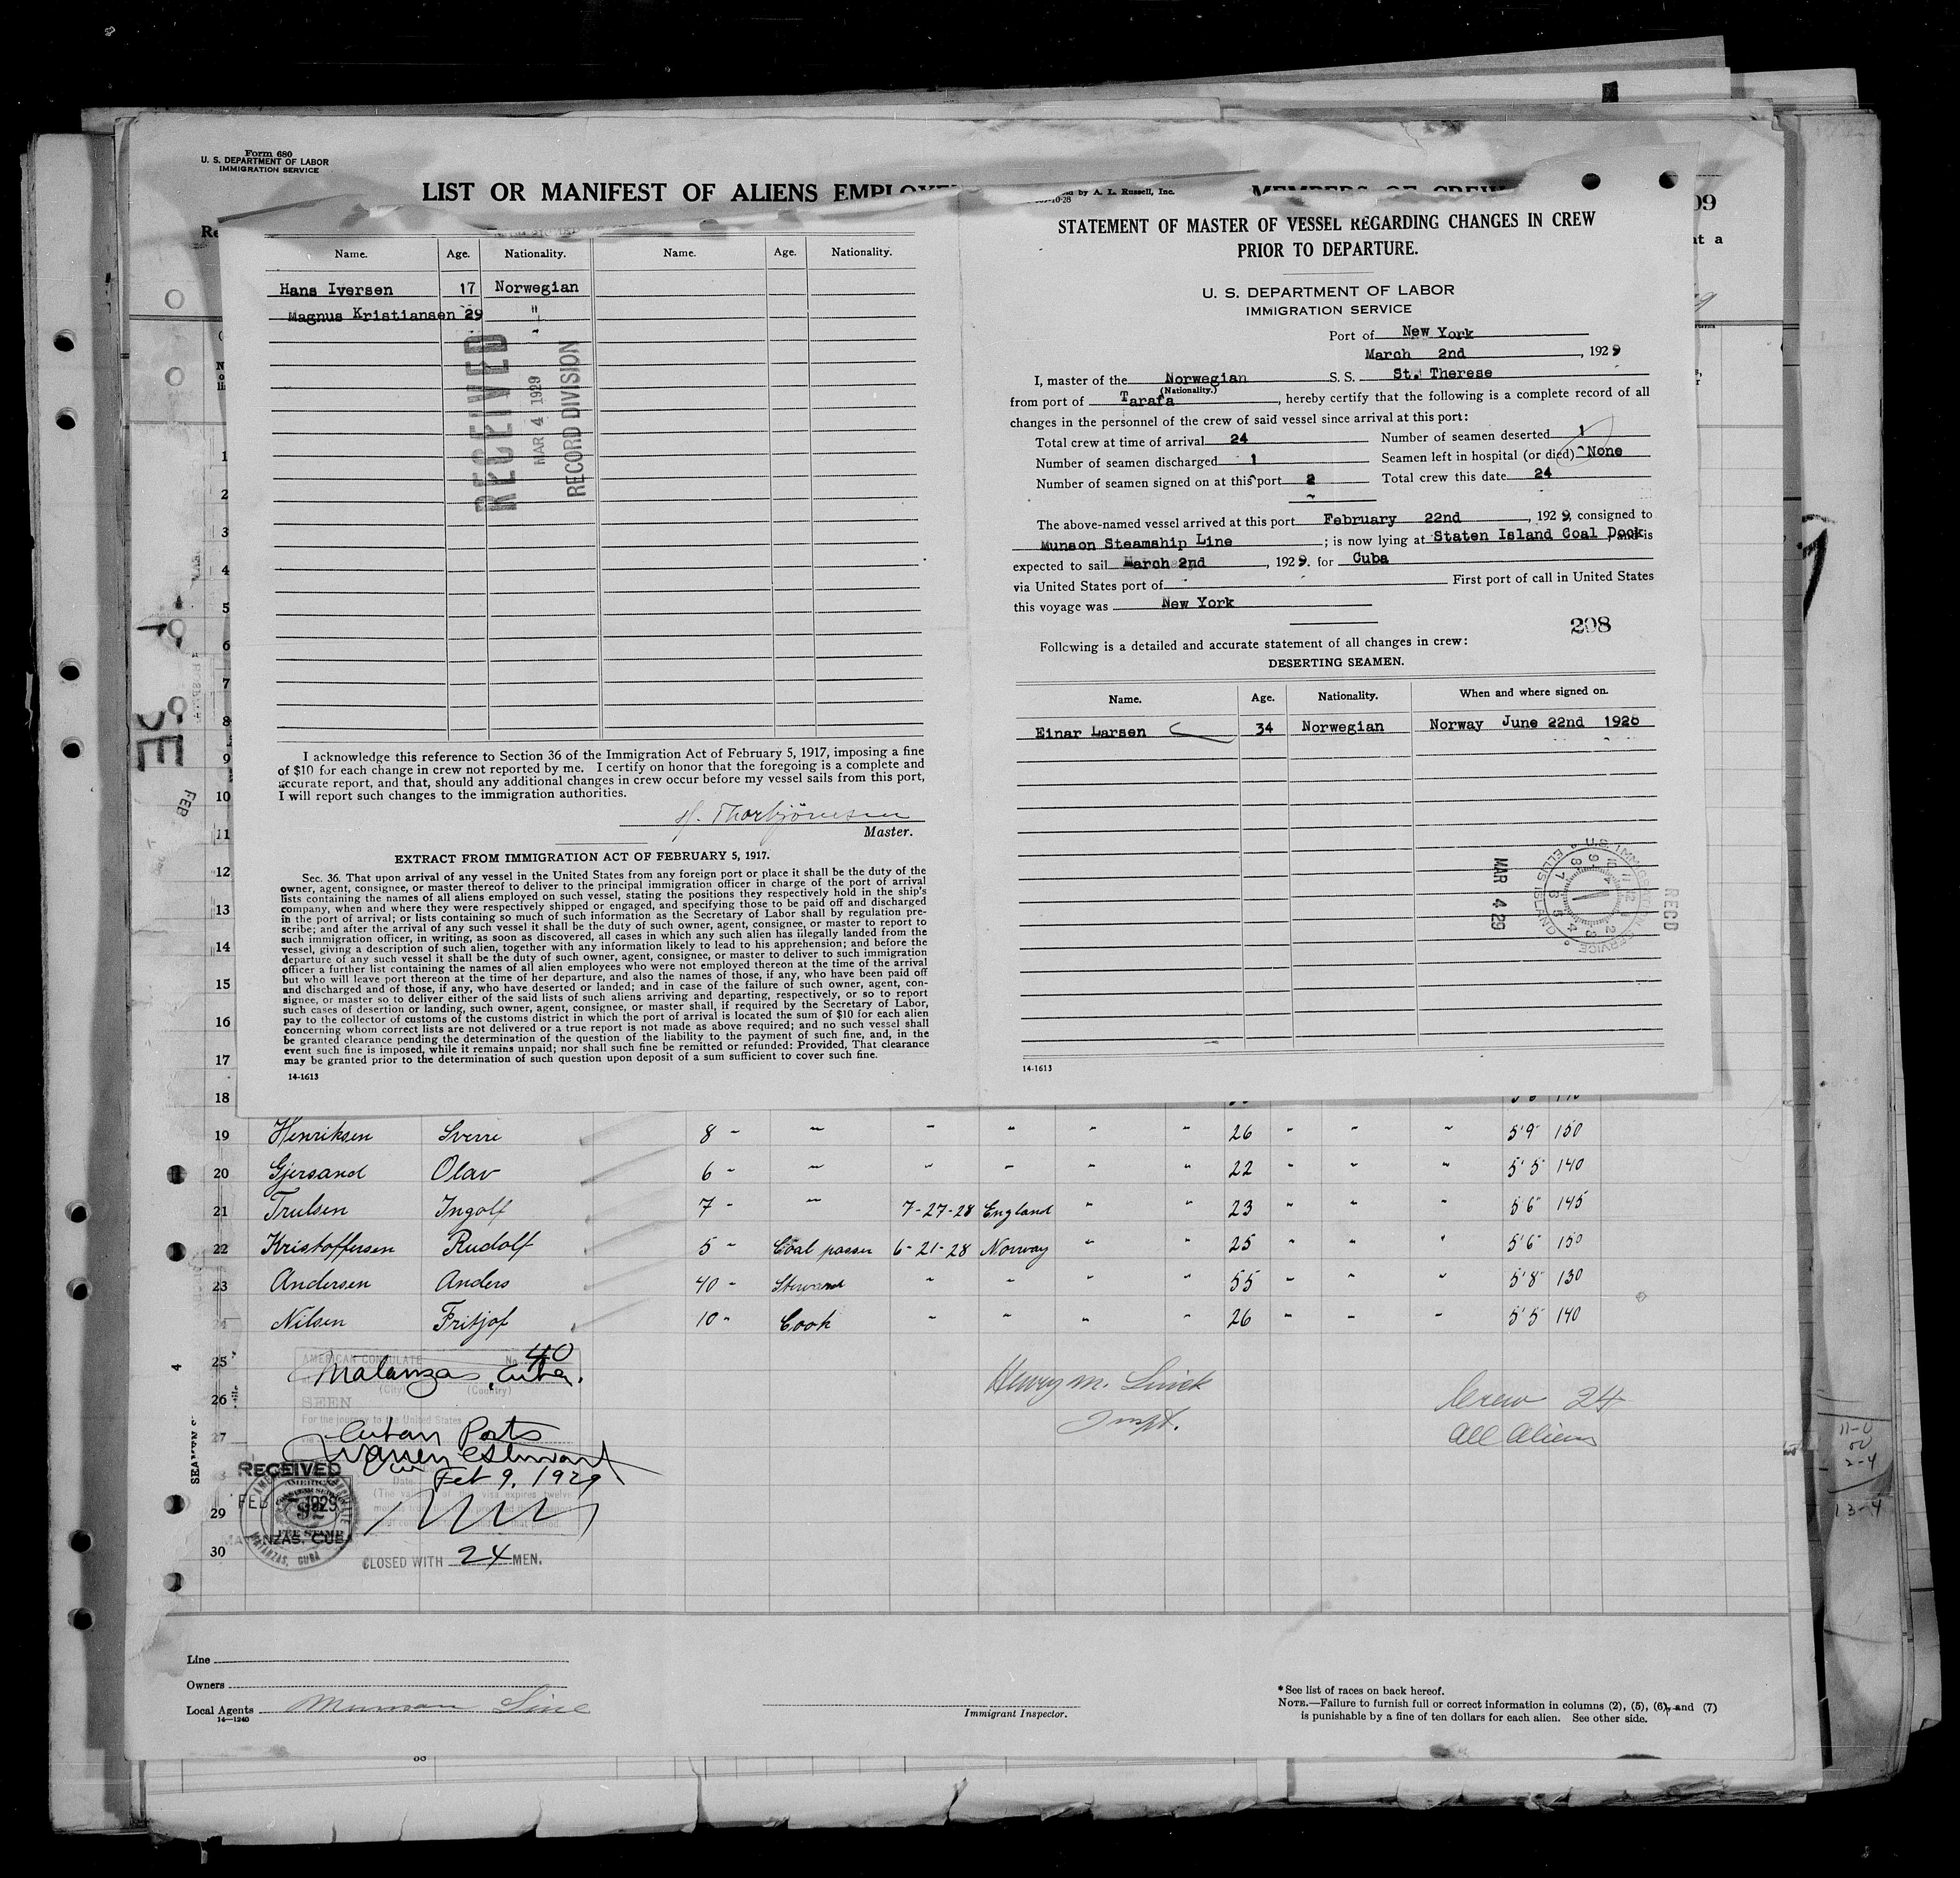 Form 680
U. S. DEPARTMENT OF LABOR
IMMIGRATION SERVICE
LIST OR MANIFEST OF ALIENS EMPLOYE
MEMBERS OF CREW
by A. L. Russell, Inc.
Name. Age. Nationality. Name. Age. Nationality.
Hans Iversen 17 Norwegian
Magnus Kristiansen 29 -"-
RECEIVED
MAR 4 1929
RECORD DIVISION
I acknowledge this reference to Section 36 of the Immigration Act of February 5, 1917, imposing a fine
of $10 for each change in crew not reported by me. I certify on honor that the foregoing is a complete and
accurate report, and that, should any additional changes in crew occur before my vessel sails from this port,
I will report such changes to the immigration authorities.
H. Thorbjörnsen
Master.
EXTRACT FROM IMMIGRATION ACT OF FEBRUARY 5, 1917.
Sec. 36. That upon arrival of any vessel in the United States from any foreign port or place it shall be the duty of the
owner, agent, consignee, or master thereof to deliver to the principal immigration officer in charge of the port of arrival
lists containing the names of all aliens employed on such vessel, stating the positions they respectively hold in the ship's
company, when and where they were respectively shipped or engaged, and specifying those to be paid off and discharged
in the port of arrival; or lists containing so much of such information as the Secretary of Labor shall by regulation pre-
scribe; and after the arrival of any such vessel it shall be the duty of such owner, agent, consignee, or master to report to
such immigration officer, in writing, as soon as discovered, all cases in which any such alien has illegally landed from the
vessel, giving a description of such alien, together with any information likely to lead to his apprehension; and before the
departure of any such vessel it shall be the duty of such owner, agent, consignee, or master to deliver to such immigration
officer a further list containing the names of all alien employees who were not employed thereon at the time of the arrival
but who will leave port thereon at the time of her departure, and also the names of those, if any, who have been paid off
and discharged and of those, if any, who have deserted or landed; and in case of the failure of such owner, agent, con-
signee, or master so to deliver either of the said lists of such aliens arriving and departing, respectively, or so to report
such cases of desertion or landing, such owner, agent, consignee, or master shall, if required by the Secretary of Labor,
pay to the collector of customs of the customs district in which the port of arrival is located the sum of $10 for each alien
concerning whom correct lists are not delivered or a true report is not made as above required; and no such vessel shall
be granted clearance pending the determination of the question of the liability to the payment of such fine, and, in the
event such fine is imposed, while it remains unpaid; nor shall such fine be remitted or refunded: Provided, That clearance
may be granted prior to the determination of such question upon deposit of a sum sufficient to cover such fine.
14-1613
STATEMENT OF MASTER OF VESSEL REGARDING CHANGES IN CREW
PRIOR TO DEPARTURE.
U. S. DEPARTMENT OF LABOR
IMMIGRATION SERVICE
Port of New York
March 2nd, 1929
I, master of the Norwegian S. S. St. Therese
(Nationality.)
from port of Tarafa, hereby certify that the following is a complete record of all
changes in the personnel of the crew of said vessel since arrival at this port:
Total crew at time of arrival 24 Number of seamen deserted 1
Number of seamen discharged 1 Seamen left in hospital (or died) None
Number of seamen signed on at this port 2 Total crew this date 24
The above-named vessel arrived at this port February 22nd, 1929, consigned to
Munson Steamship Line; is now lying at Staten Island Coal Dock and is
expected to sail March 2nd, 1929. for Cuba
via United States port of First port of call in United States
this voyage was New York
208
Following is a detailed and accurate statement of all changes in crew:
DESERTING SEAMEN.
Name. Age. Nationality. When and where signed on.
Einar Larsen 34 Norwegian Norway June 22nd 1928
U. S. IMMIGRATION SERVICE ELLIS ISLAND
MAR 4 29
RECD
14-1613
1
2
3
4
5
6
7
8
9
10
11
12
13
14
15
16
17
18
19 Henriksen Sverre 8 " " " " " " 26 " " " 5'9" 150
20 Gjersand Olav 6 " " " " " " 22 " " " 5'5" 140
21 Trulsen Ingolf 7 " " 7-27-28 England " " 23 " " " 5'6" 145
22 Kristoffersen Rudolf 5 " Coal passer 6-21-28 Norway " " 25 " " " 5'6" 150
23 Andersen Anders 40 " Steward " " " " 55 " " " 5'8" 130
24 Nilsen Fritjof 10 " Cook " " " " 26 " " " 5'5" 140
25
26
27
29
30
AMERICAN CONSULATE No. 40
Matanzas, Cuba.
(City) (Country)
SEEN
For the journey to the United States
via Cuban Ports
Feb 9, 1929
RECEIVED
FEB 1929
MATANZAS, CUBA
CLOSED WITH 24 MEN.
Inspt.
Crew 24
All Aliens
Line
Owners
Local Agents Munson Line
14—1240
Immigrant Inspector.
* See list of races on back hereof.
NOTE.—Failure to furnish full or correct information in columns (2), (5), (6), and (7)
is punishable by a fine of ten dollars for each alien. See other side.